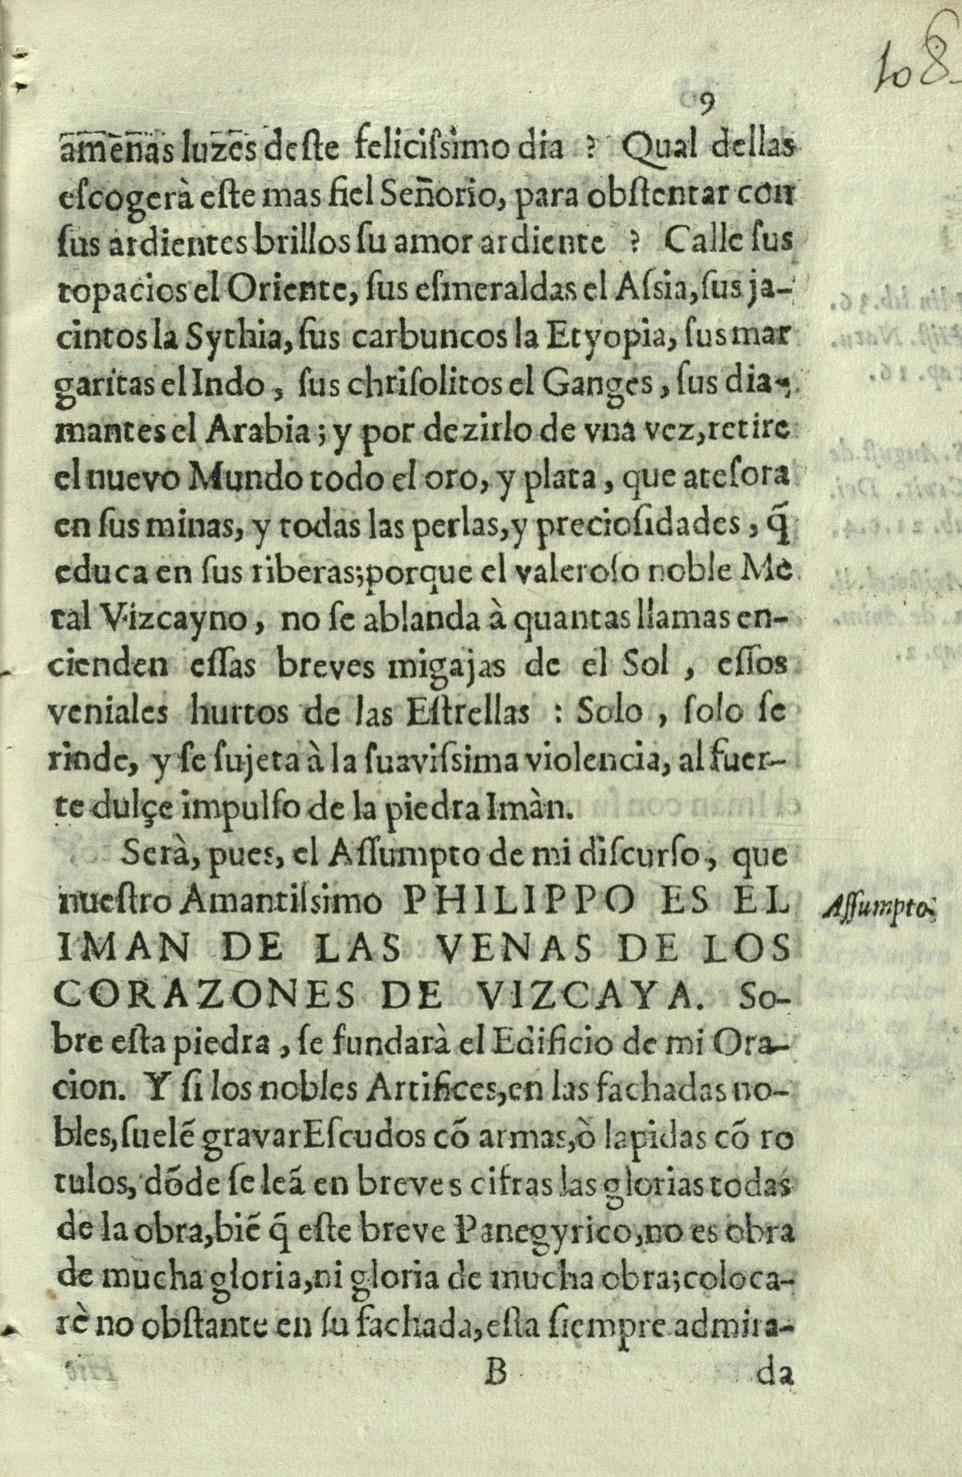 108
9
amenas luzes deste felicissimo dia ? Qual dellas
escogerà este mas fiel Señorio, para obstentar con
sus ardientes brillos su amor ardiente ? Calle sus
topacios el Oriente, sus esmeraldas el Assia, sus ja-
cintos la Sythia, sus carbuncos la Etyopia, sus mar
garitas el Indo, sus chrisolitos el Ganges, sus dia-
mantes el Arabia; y por dezirlo de vna vez, retire
el nuevo Mundo todo el oro, y plata, que atesora
en sus minas, y todas las perlas, y preciosidades, q̃
educa en sus riberas; porque el valeroso noble Me
tal Vizcayno, no se ablanda à quantas llamas en-
cienden essas breves migajas de el Sol, essos
veniales hurtos de las Estrellas : Solo, solo se
rinde, y se sujeta à la suavissima violencia, al fuer-
te dulçe impulso de la piedra Imàn.
Serà, pues, el Assumpto de mi discurso, que
nuestro Amantissimo PHILIPPO ES EL
Assumpto.
IMAN DE LAS VENAS DE LOS
CORAZONES DE VIZCAYA. So-
bre esta piedra, se fundarà el Edificio de mi Ora-
cion. Y si los nobles Artifices, en las fachadas no-
bles, suelẽ gravar Escudos cõ armas, ò lapidas cõ ro
tulos, dõde se leã en breves cifras las glorias todas
de la obra, biẽ q̃ este breve Panegyrico, no es obra
de mucha gloria, ni gloria de mucha obra; coloca-
rè no obstante en su fachada, esta siempre admira-
B
da